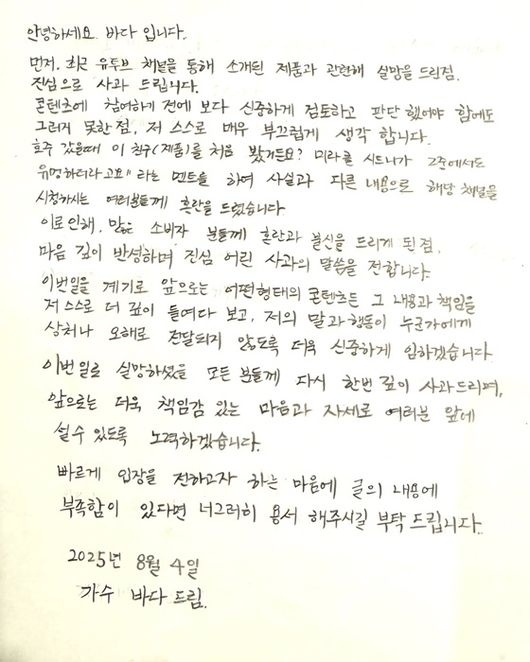 안녕하세요 바다 입니다.
먼저, 최근 유투브 채널을 통해 소개된 제품과 관련해 실망을 드린점,
진심으로 사과 드립니다.
콘텐츠에 참여하기 전에 보다 신중하게 검토하고 판단 했어야 함에도
그러지 못한 점, 저 스스로 매우 부끄럽게 생각 합니다.
호주 갔을때 이 친구(제품)를 처음 봤거든요? 미라클 시드니가 2존에서도
유명하더라고요" 라는 멘트을 하여 사실과 다른 내용으로 해당 채널을
시청하시는 여러분들께 혼란을 드렸습니다
이로 인해, 많은 소비자 분들께 혼란과 불신을 드리게 된 점,
마음 깊이 반성하며 진심 어린 사과의 말씀을 전합니다.
이번일을 계기로 앞으로는 어떤형태의 콘텐츠든 그 내용과 책임을
저 스스로 더 깊이 들여다 보고, 저의 말과 행동이 누군가에게
상처나 오해로 전달되지 않도록 더욱 신중하게 임하겠습니다
이번 일로 실망하셨을 모든 분들께 다시 한번 깊이 사과드리며,
앞으로는 더욱 책임감 있는 마음과 자세로 여러분 앞에
설 수 있도록 노력하겠습니다.
빠르게 입장을 전하고자 하는 마음에 글의 내용에
부족함이 있다면 너그러히 용서 해주시길 부탁 드립니다.
2025년 8월 4일
가수 바다 드림.